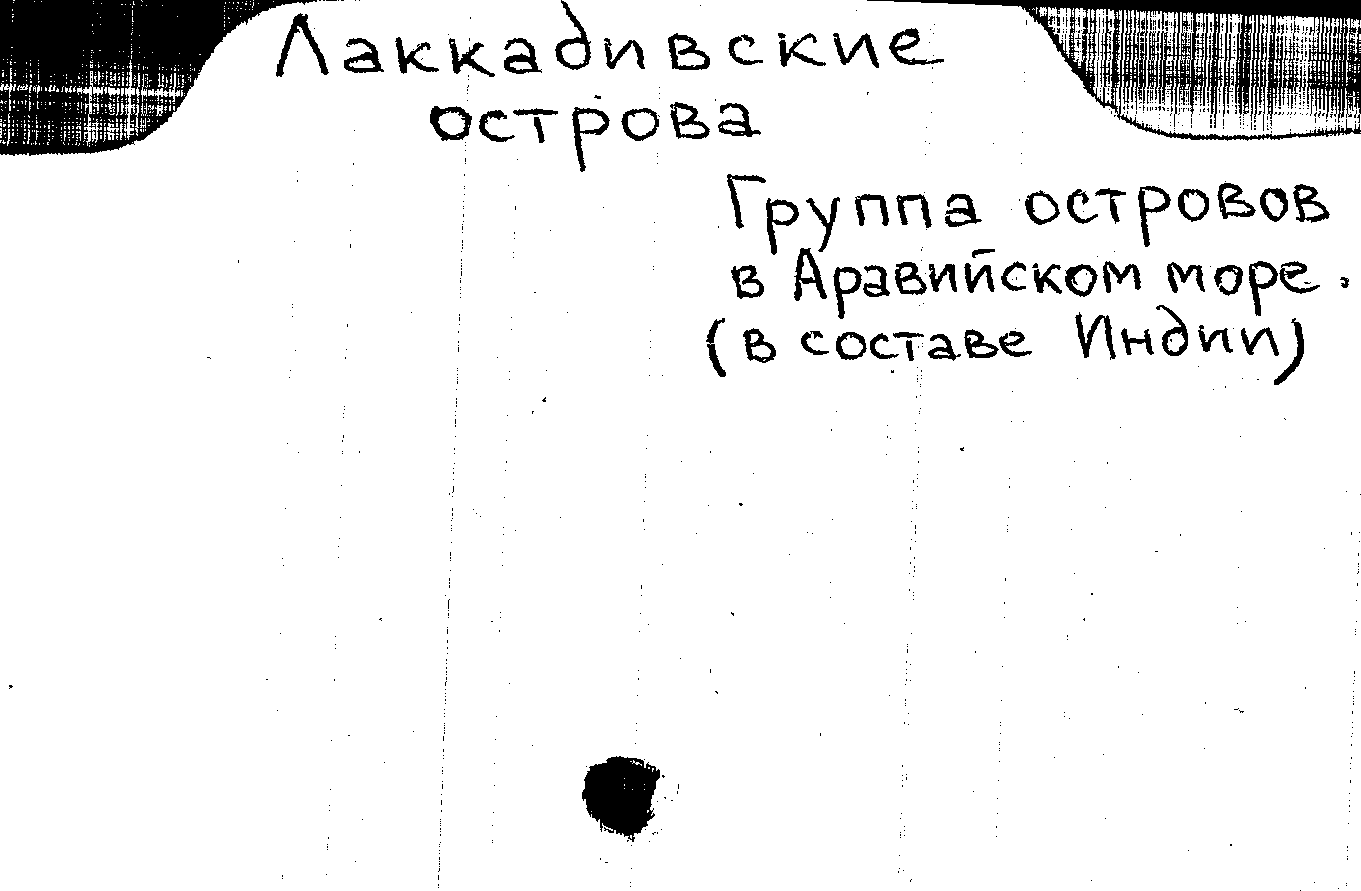 Лаккадивские
острова
Группа островов
в Аравийском море.
(в составе Индии)